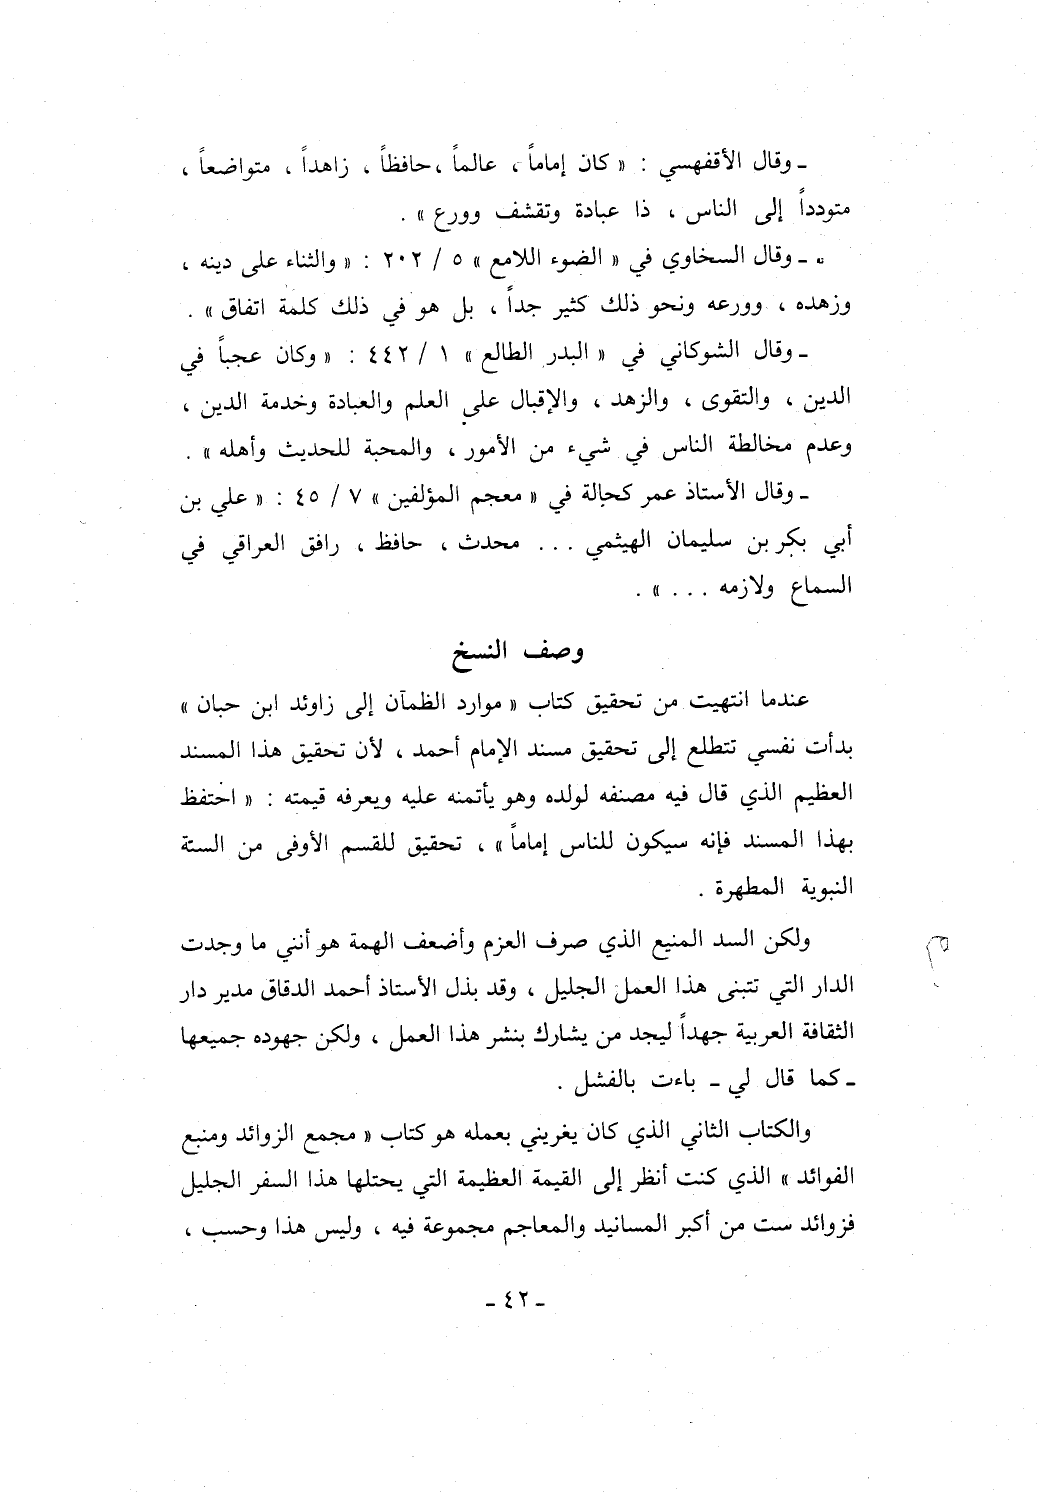 ـ وقال الأقفهسي : « كان إماماً ، عالماً ، حافظاً ، زاهداً ، متواضعاً ،
متودداً إلى الناس ، ذا عبادة وتقشف وورع » .
ـ وقال السخاوي في « الضوء اللامع » ٥ / ٢٠٢ : « والثناء على دينه ،
وزهده ، وورعه ونحو ذلك كثير جداً ، بل هو في ذلك كلمة اتفاق » .
ـ وقال الشوكاني في « البدر الطالع » ١ / ٤٤٢ : « وكان عجباً في
الدين ، والتقوى ، والزهد ، والإقبال على العلم والعبادة وخدمة الدين ،
وعدم مخالطة الناس في شيء من الأمور ، والمحبة للحديث وأهله » .
ـ وقال الأستاذ عمر كحالة في « معجم المؤلفين » ٧ / ٤٥ : « علي بن
أبي بكر بن سليمان الهيثمي ... محدث ، حافظ ، رافق العراقي في
السماع ولازمه ... » .
وصف النسخ
عندما انتهيت من تحقيق كتاب « موارد الظمآن إلى زاوئد ابن حبان »
بدأت نفسي تتطلع إلى تحقيق مسند الإمام أحمد ، لأن تحقيق هذا المسند
العظيم الذي قال فيه مصنفه لولده وهو يأتمنه عليه ويعرفه قيمته : « احتفظ
بهذا المسند فإنه سيكون للناس إماماً » ، تحقيق للقسم الأوفى من السنة
النبوية المطهرة .
ولكن السد المنيع الذي صرف العزم وأضعف الهمة هو أنني ما وجدت
الدار التي تتبنى هذا العمل الجليل ، وقد بذل الأستاذ أحمد الدقاق مدير دار
الثقافة العربية جهداً ليجد من يشارك بنشر هذا العمل ، ولكن جهوده جميعها
ـ كما قال لي ـ باءت بالفشل .
والكتاب الثاني الذي كان يغريني بعمله هو كتاب « مجمع الزوائد ومنبع
الفوائد » الذي كنت أنظر إلى القيمة العظيمة التي يحتلها هذا السفر الجليل
فزوائد ست من أكبر المسانيد والمعاجم مجموعة فيه ، وليس هذا وحسب ،
ـ ٤٢ ـ